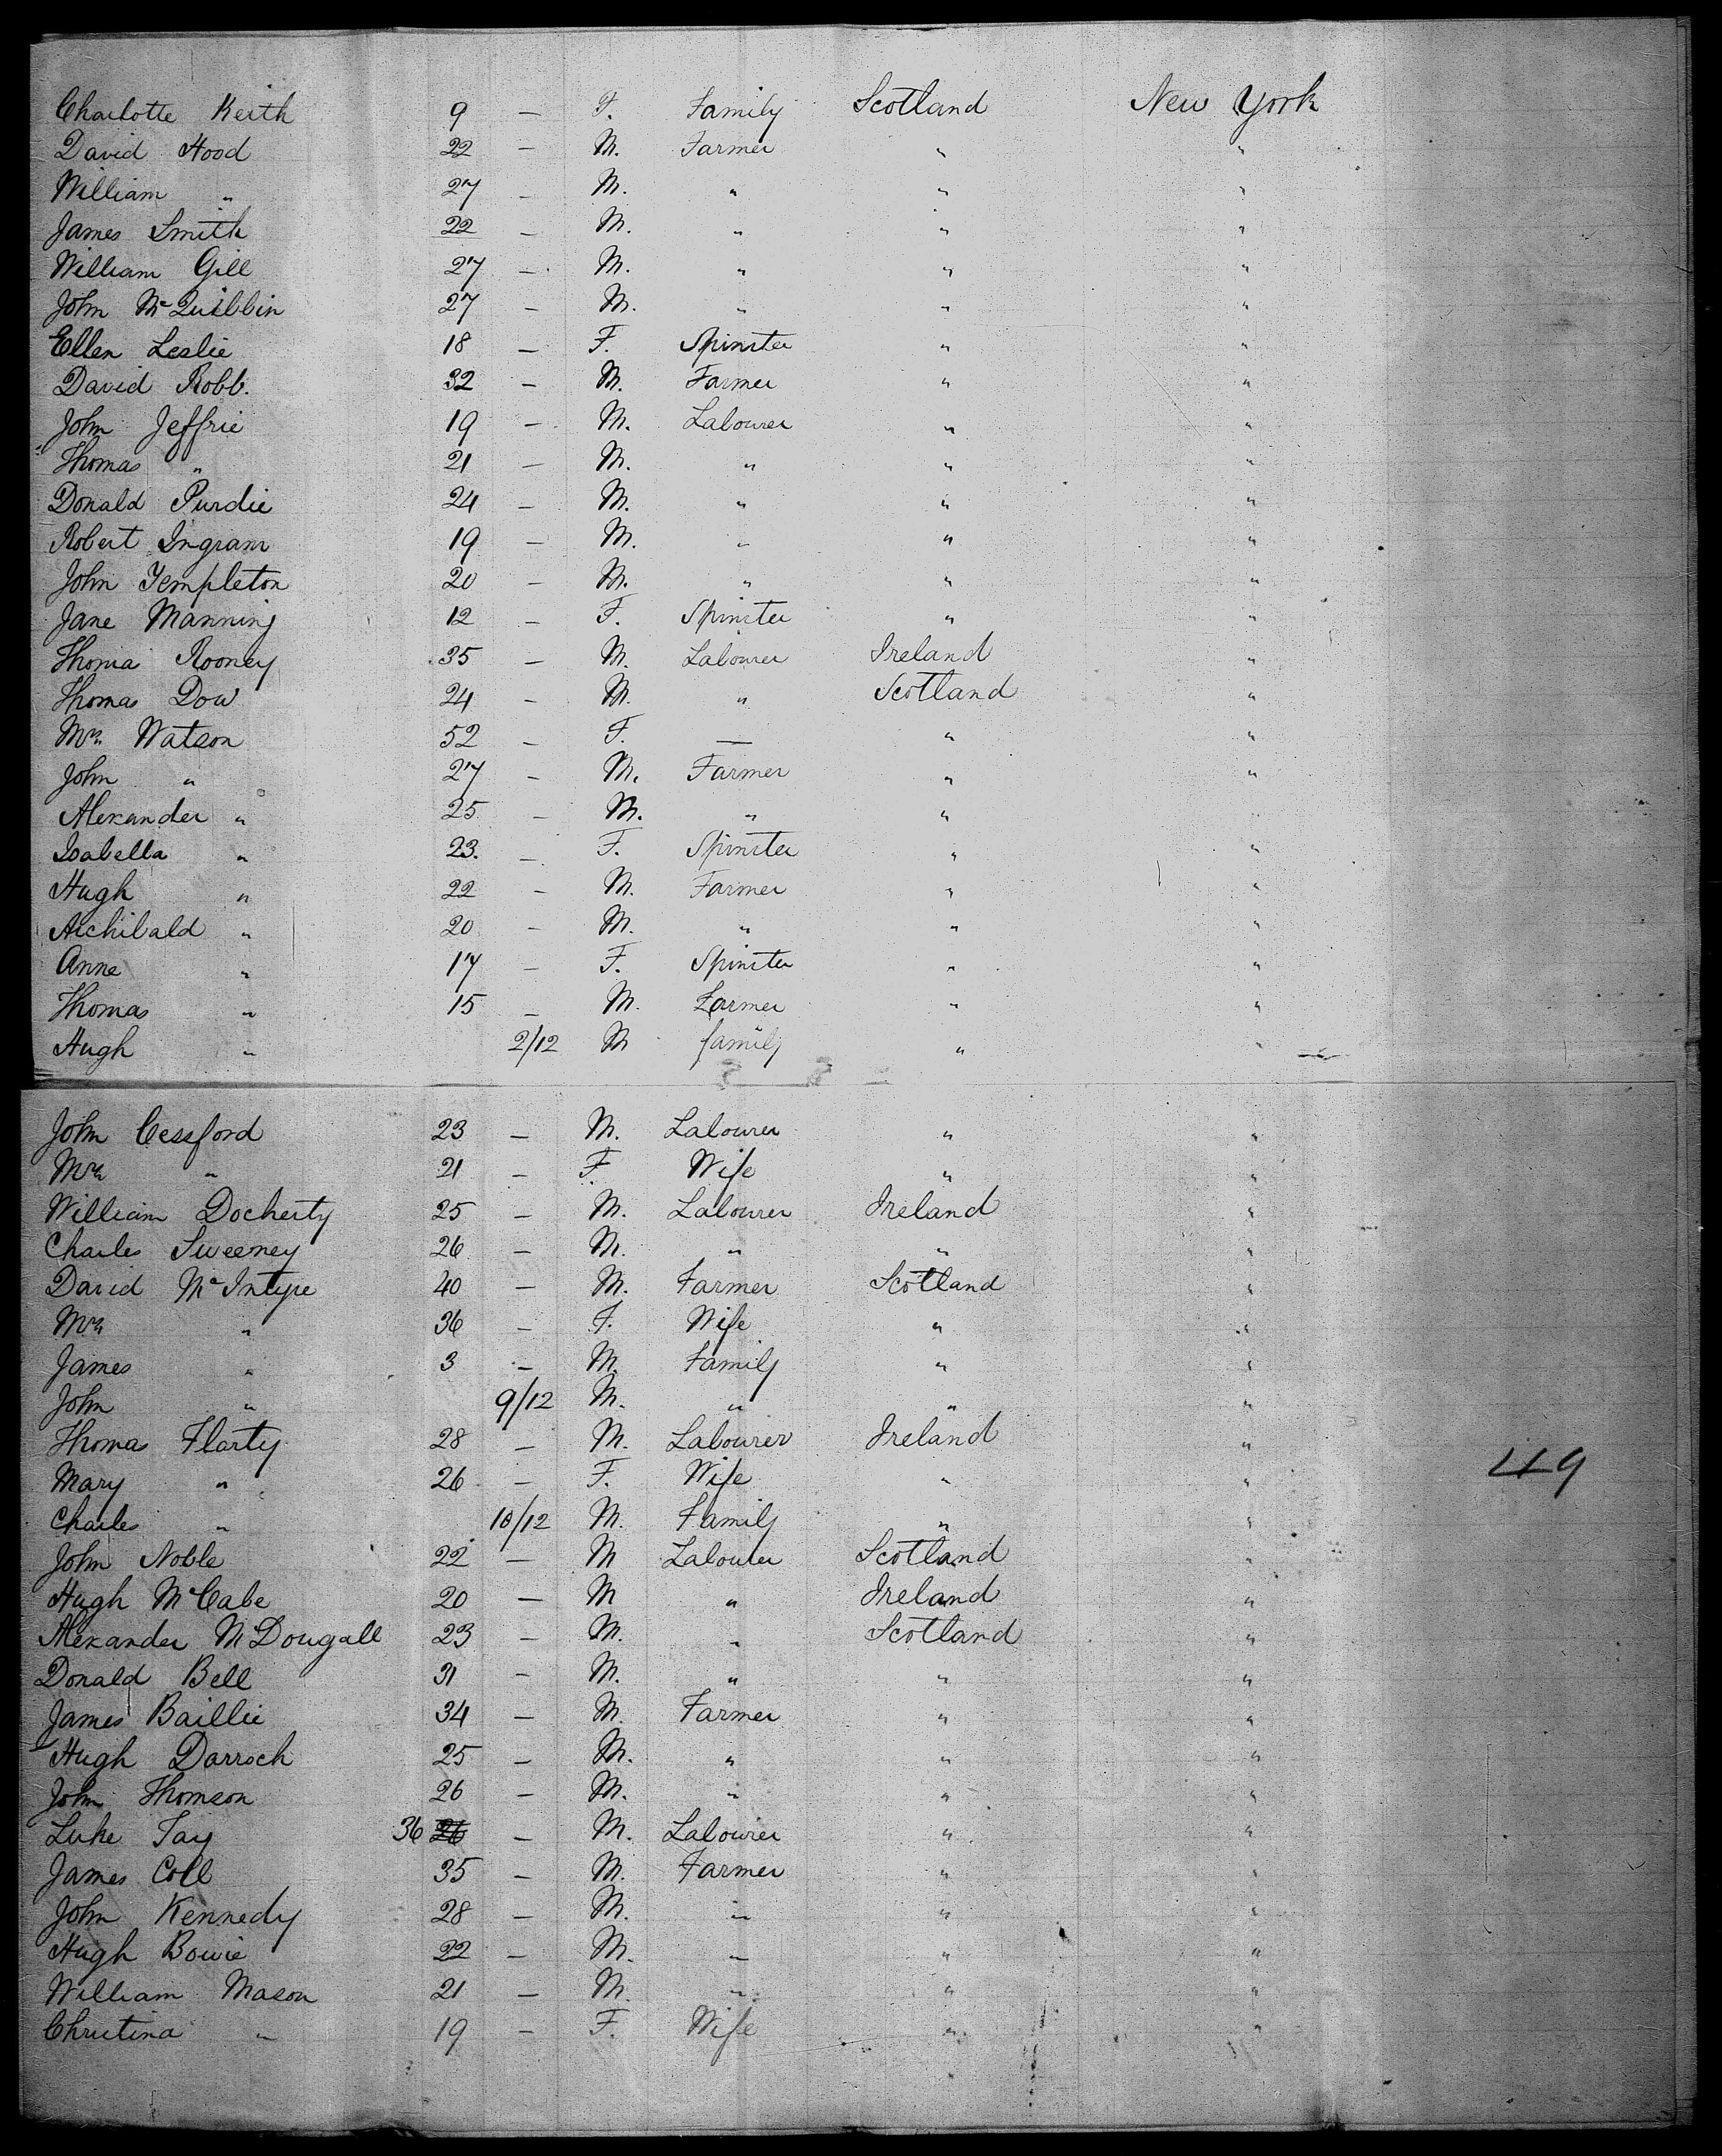 Charlotte Keith 9 – F. Family Scotland New York
David Hood 22 – M. Farmer " "
William " 27 – M. " " "
James Smith 22 – M. " " "
William Gill 27 – M. " " "
John McQuibbin 27 – M. " " "
Ellen Leslie 18 – F. Spinster " "
David Robb. 32 – M. Farmer " "
John Jeffrie 19 – M. Labourer " "
Thomas " 21 – M. " " "
Donald Purdie 24 – M. " " "
Robert Ingram 19 – M. " " "
John Templeton 20 – M. " " "
Jane Manning 12 – F. Spinster " "
Thomas Rooney 35 – M. Labourer Ireland "
Thomas Dow 24 – M. " Scotland "
Mrs Watson 52 – F. — " "
John " 27 – M. Farmer " "
Alexander " 25 – M. " " "
Isabella " 23. – F. Spinster " "
Hugh " 22 – M. Farmer " "
Archibald " 20 – M. " " "
Anne " 17 – F. Spinster " "
Thomas " 15 – M. Farmer " "
Hugh " 2/12 M family " "
John Cessford 23 – M. Labourer " "
Mrs " 21 – F. Wife " "
William Docherty 25 – M. Labourer Ireland "
Charles Sweeney 26 – M. " " "
David McIntyre 40 – M. Farmer Scotland "
Mrs " 36 – F. Wife " "
James " 3 – M. Family " "
John " 9/12 M. " " "
Thomas Flarty 28 – M. Labourer Ireland "
Mary " 26 – F. Wife " " 49
Charles " 10/12 M. Family " "
John Noble 22 – M Labourer Scotland "
Hugh McCabe 20 – M " Ireland "
Alexander McDougall 23 – M. " Scotland "
Donald Bell 31 – M. " " "
James Baillie 34 – M. Farmer " "
Hugh Darroch 25 – M. " " "
John Thomson 26 – M. " " "
Luke Tay 36 26 – M. Labourer " "
James Coll 35 – M. Farmer " "
John Kennedy 28 – M. " " "
Hugh Bowie 22 – M. " " "
William Mason 21 – M. " " "
Christina " 19 – F. Wife " "